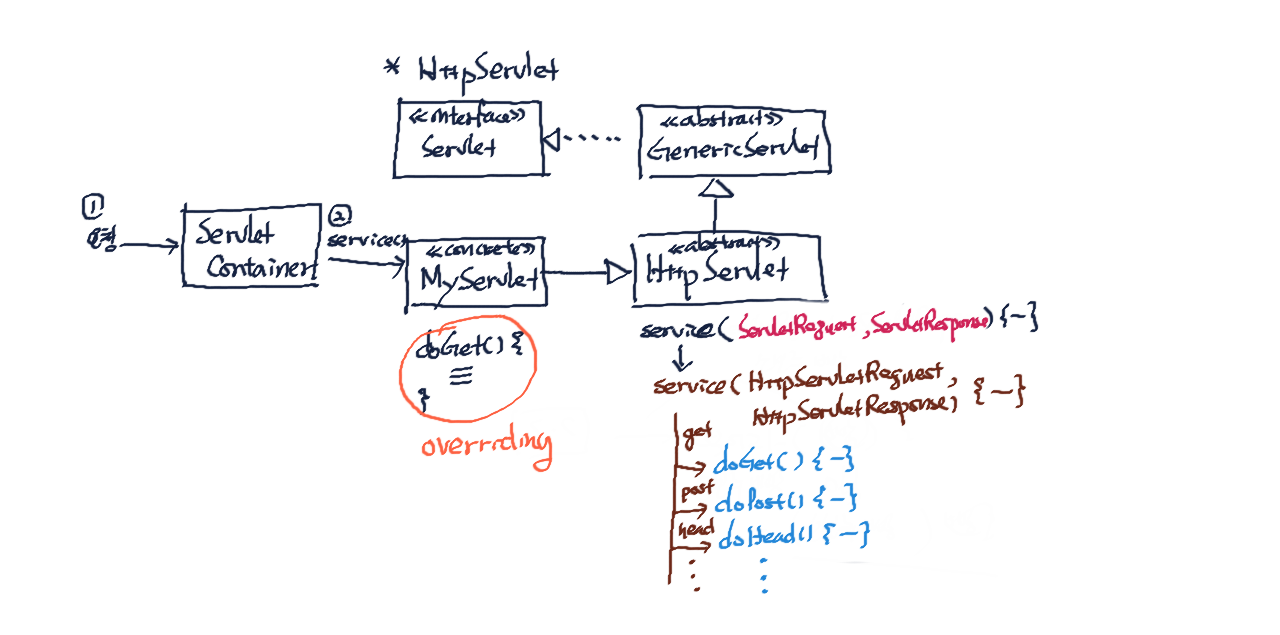 * HttpServlet
<<interface>>
Servlet
<<abstract>>
GenericServlet
①
요청
Servlet
Container
②
service()
<<concrete>>
MyServlet
<<abstract>>
HttpServlet
doGet() {
}
overriding
service( ServletRequest, ServletResponse) {~}
service( HttpServletRequest,
HttpServletResponse) {~}
get
doGet() {~}
post
doPost() {~}
head
doHead() {~}